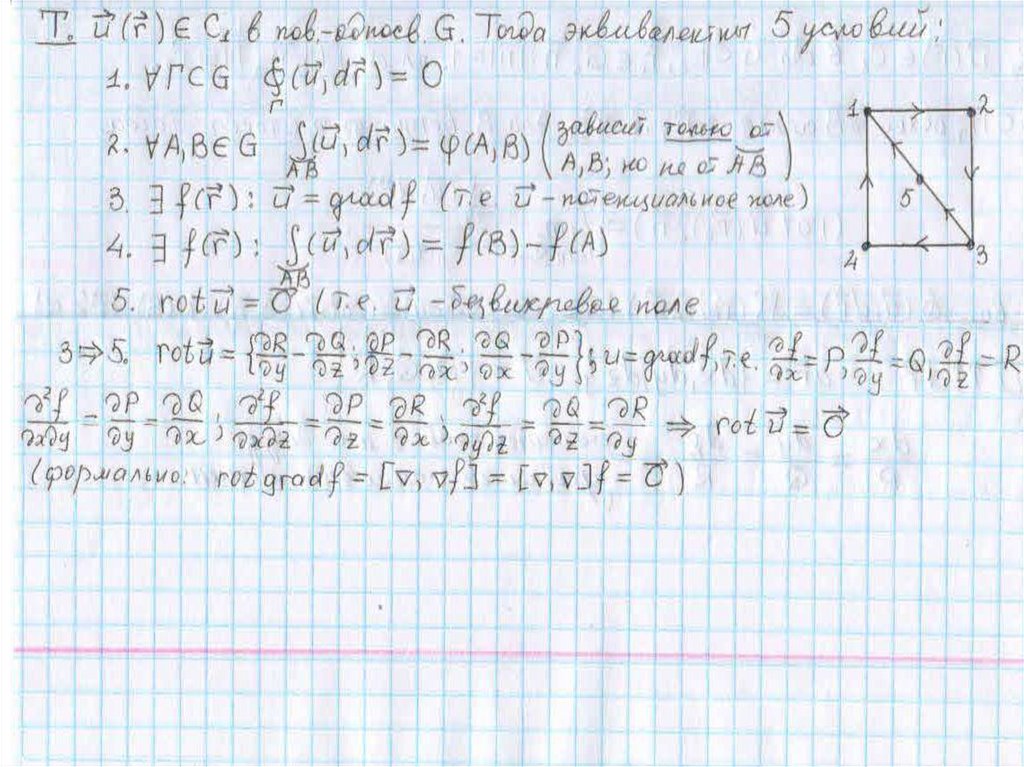 Т. u⃗(r⃗) ∈ C₁ в пов.-односв. G. Тогда эквивалентны 5 условий:
1. ∀Γ⊂G ∮_Γ (u⃗, dr⃗) = 0
2. ∀A,B∈G ∫_{A͝B} (u⃗, dr⃗) = φ(A,B) (зависит только от A,B; но не от A͝B)
3. ∃ f(r⃗): u⃗ = grad f (т.е. u⃗ - потенциальное поле)
4. ∃ f(r⃗): ∫_{A͝B} (u⃗, dr⃗) = f(B) – f(A)
5. rot u⃗ = 0⃗ (т.е. u⃗ - безвихревое поле
1 2
5
4 3
3⇒5. rot u⃗ = {∂R/∂y − ∂Q/∂z; ∂P/∂z − ∂R/∂x; ∂Q/∂x − ∂P/∂y}; u = grad f, т.е. ∂f/∂x = P, ∂f/∂y = Q, ∂f/∂z = R
∂²f/∂x∂y = ∂P/∂y = ∂Q/∂x; ∂²f/∂x∂z = ∂P/∂z = ∂R/∂x; ∂²f/∂y∂z = ∂Q/∂z = ∂R/∂y ⇒ rot u⃗ = 0⃗
(формально: rot grad f = [∇, ∇f] = [∇,∇]f = 0⃗)